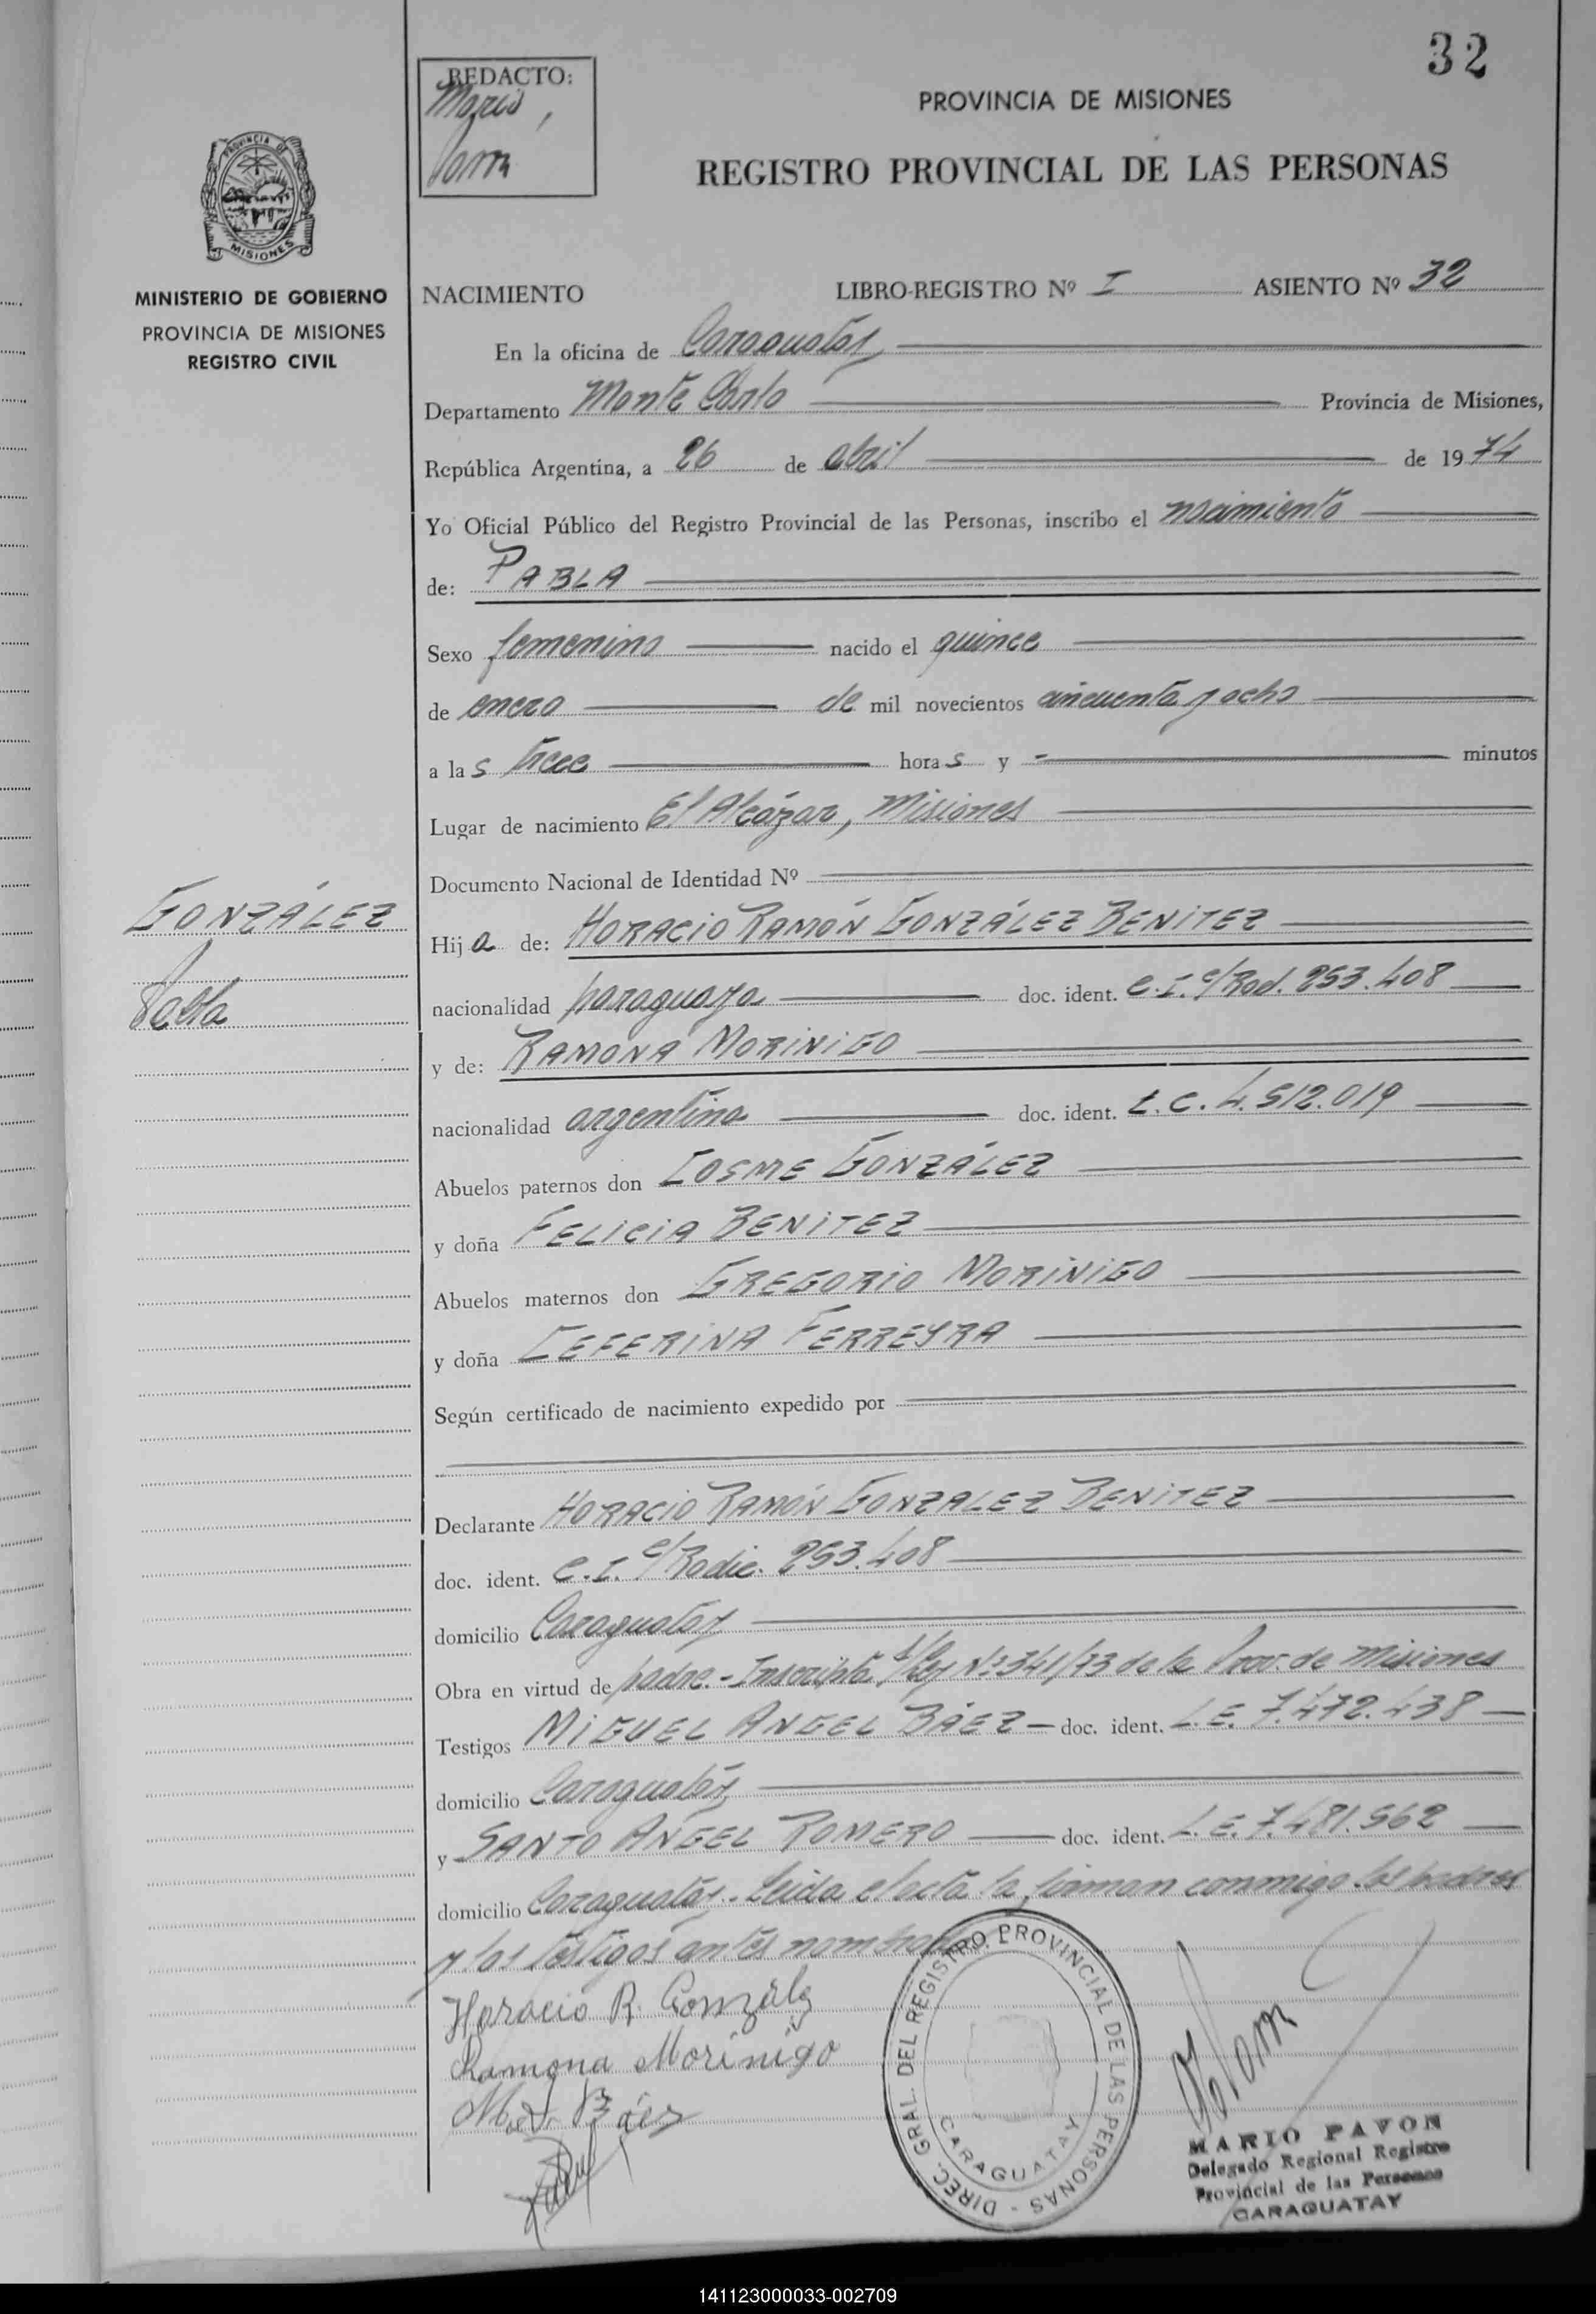 32
REDACTO:
Mario
PROVINCIA DE MISIONES
REGISTRO PROVINCIAL DE LAS PERSONAS
PROVINCIA DE
MISIONES
MINISTERIO DE GOBIERNO
PROVINCIA DE MISIONES
REGISTRO CIVIL
NACIMIENTO LIBRO-REGISTRO Nº I ASIENTO Nº 32
En la oficina de Caraguatay
Departamento Monte Carlo Provincia de Misiones,
República Argentina, a 26 de abril de 1974
Yo Oficial Público del Registro Provincial de las Personas, inscribo el nacimiento
de: PABLA
Sexo femenino nacido el quince
de enero de mil novecientos cincuenta y ocho
a las trece horas y - minutos
Lugar de nacimiento El Alcázar, Misiones
Documento Nacional de Identidad Nº
GONZÁLEZ
Pabla
Hija de: HORACIO RAMÓN GONZÁLEZ BENITEZ
nacionalidad paraguaya doc. ident. C.I. c/Rad. 253.408
y de: RAMONA MORINIGO
nacionalidad argentina doc. ident. L.C. 4.512.019
Abuelos paternos don COSME GONZÁLEZ
y doña FELICIA BENITEZ
Abuelos maternos don GREGORIO MORINIGO
y doña CEFERINA FERREYRA
Según certificado de nacimiento expedido por
Declarante HORACIO RAMÓN GONZALEZ BENITEZ
doc. ident. C.I. c/Radic. 253.408
domicilio Caraguatay
Obra en virtud de padre.- Inscripta s/Ley Nº 341/73 de la Prov. de Misiones
Testigos MIGUEL ANGEL BÁEZ - doc. ident. L.E. 7.472.438
domicilio Caraguatay
y SANTO ANGEL ROMERO doc. ident. L.E. 7.481.562
domicilio Caraguatay. Leida el acta la firman conmigo los padres
y los testigos antes nombrados
Horacio R. González
Ramona Morinigo
Báez
DIREC. GRAL. DEL REGISTRO PROVINCIAL DE LAS PERSONAS -
CARAGUATAY
MARIO PAVON
Delegado Regional Registro
Provincial de las Personas
CARAGUATAY
141123000033-002709